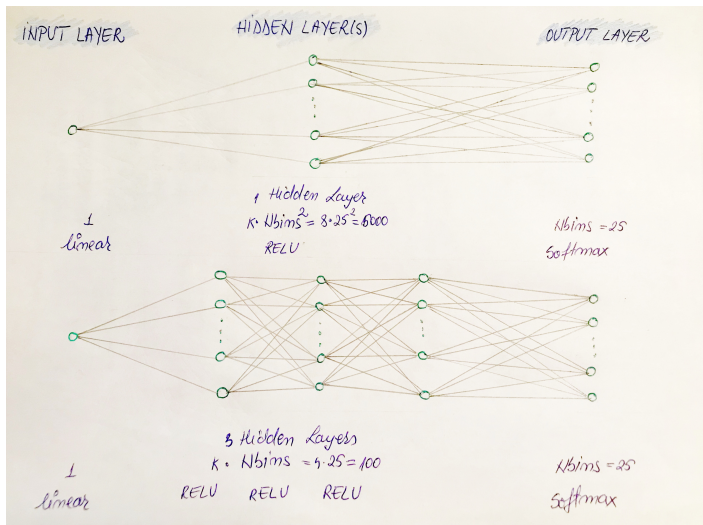 INPUT LAYER
HIDDEN LAYER(S)
OUTPUT LAYER
1 Hidden Layer
K. Nbins² = 8·25² = 5000
RELU
1
linear
Nbins = 25
Softmax
3 Hidden Layers
K. Nbins = 4·25 = 100
RELU RELU RELU
1
linear
Nbins = 25
Softmax